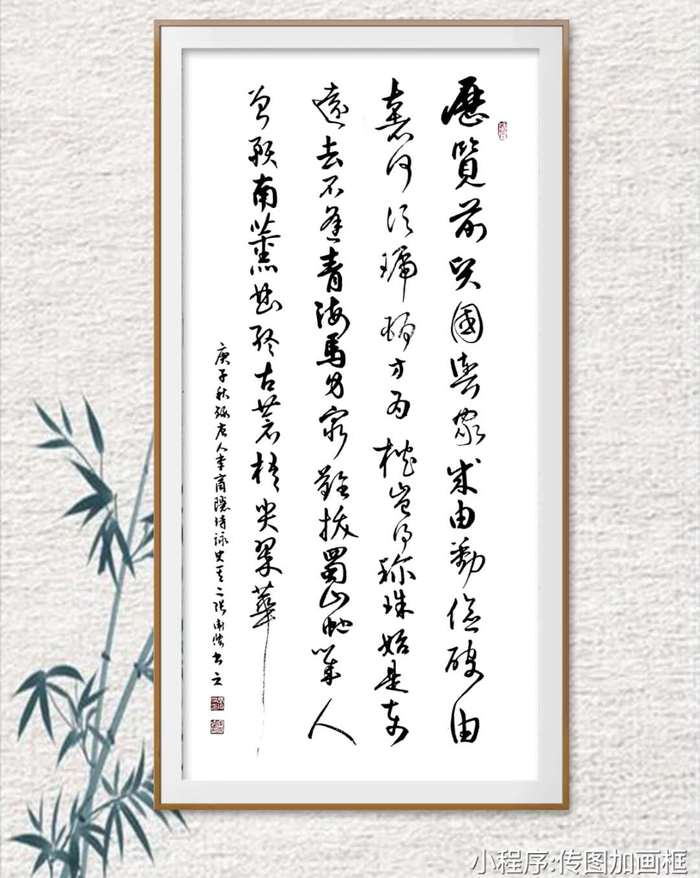 歷覽前賢國與家成由勤儉破由
奢何須琥珀方為枕豈得珍珠始是車
遠去不逢青海馬力窮難拔蜀山蛇幾人
曾預南薰曲終古蒼梧哭翠華
庚子秋錄唐人李商隱詩詠史其二張南書
小程序:传图加画框